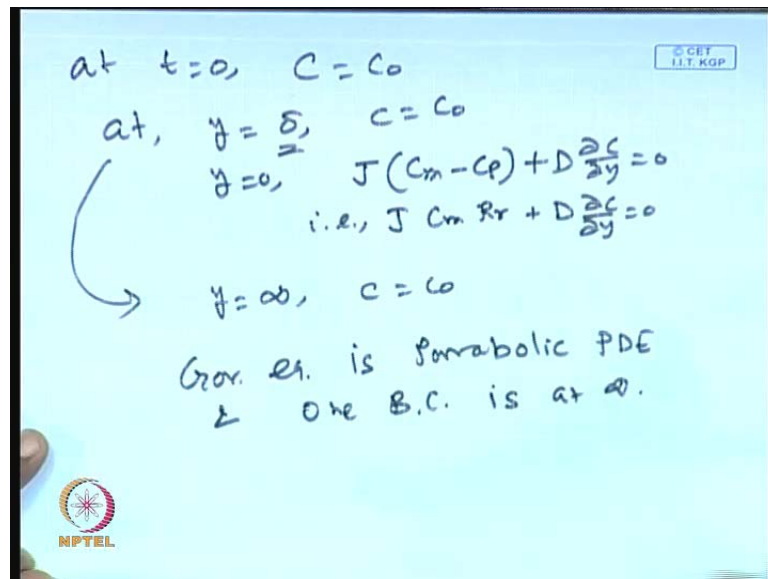 at t=0, C = Co
© CET
I.I.T. KGP
at, y = δ, C = Co
y=0, J(Cm-Cp)+D ∂C/∂y = 0
i.e., J Cm Rr + D ∂C/∂y = 0
y=∞, C = Co
Gov. eq. is Parabolic PDE
& one B.C. is at ∞.
NPTEL